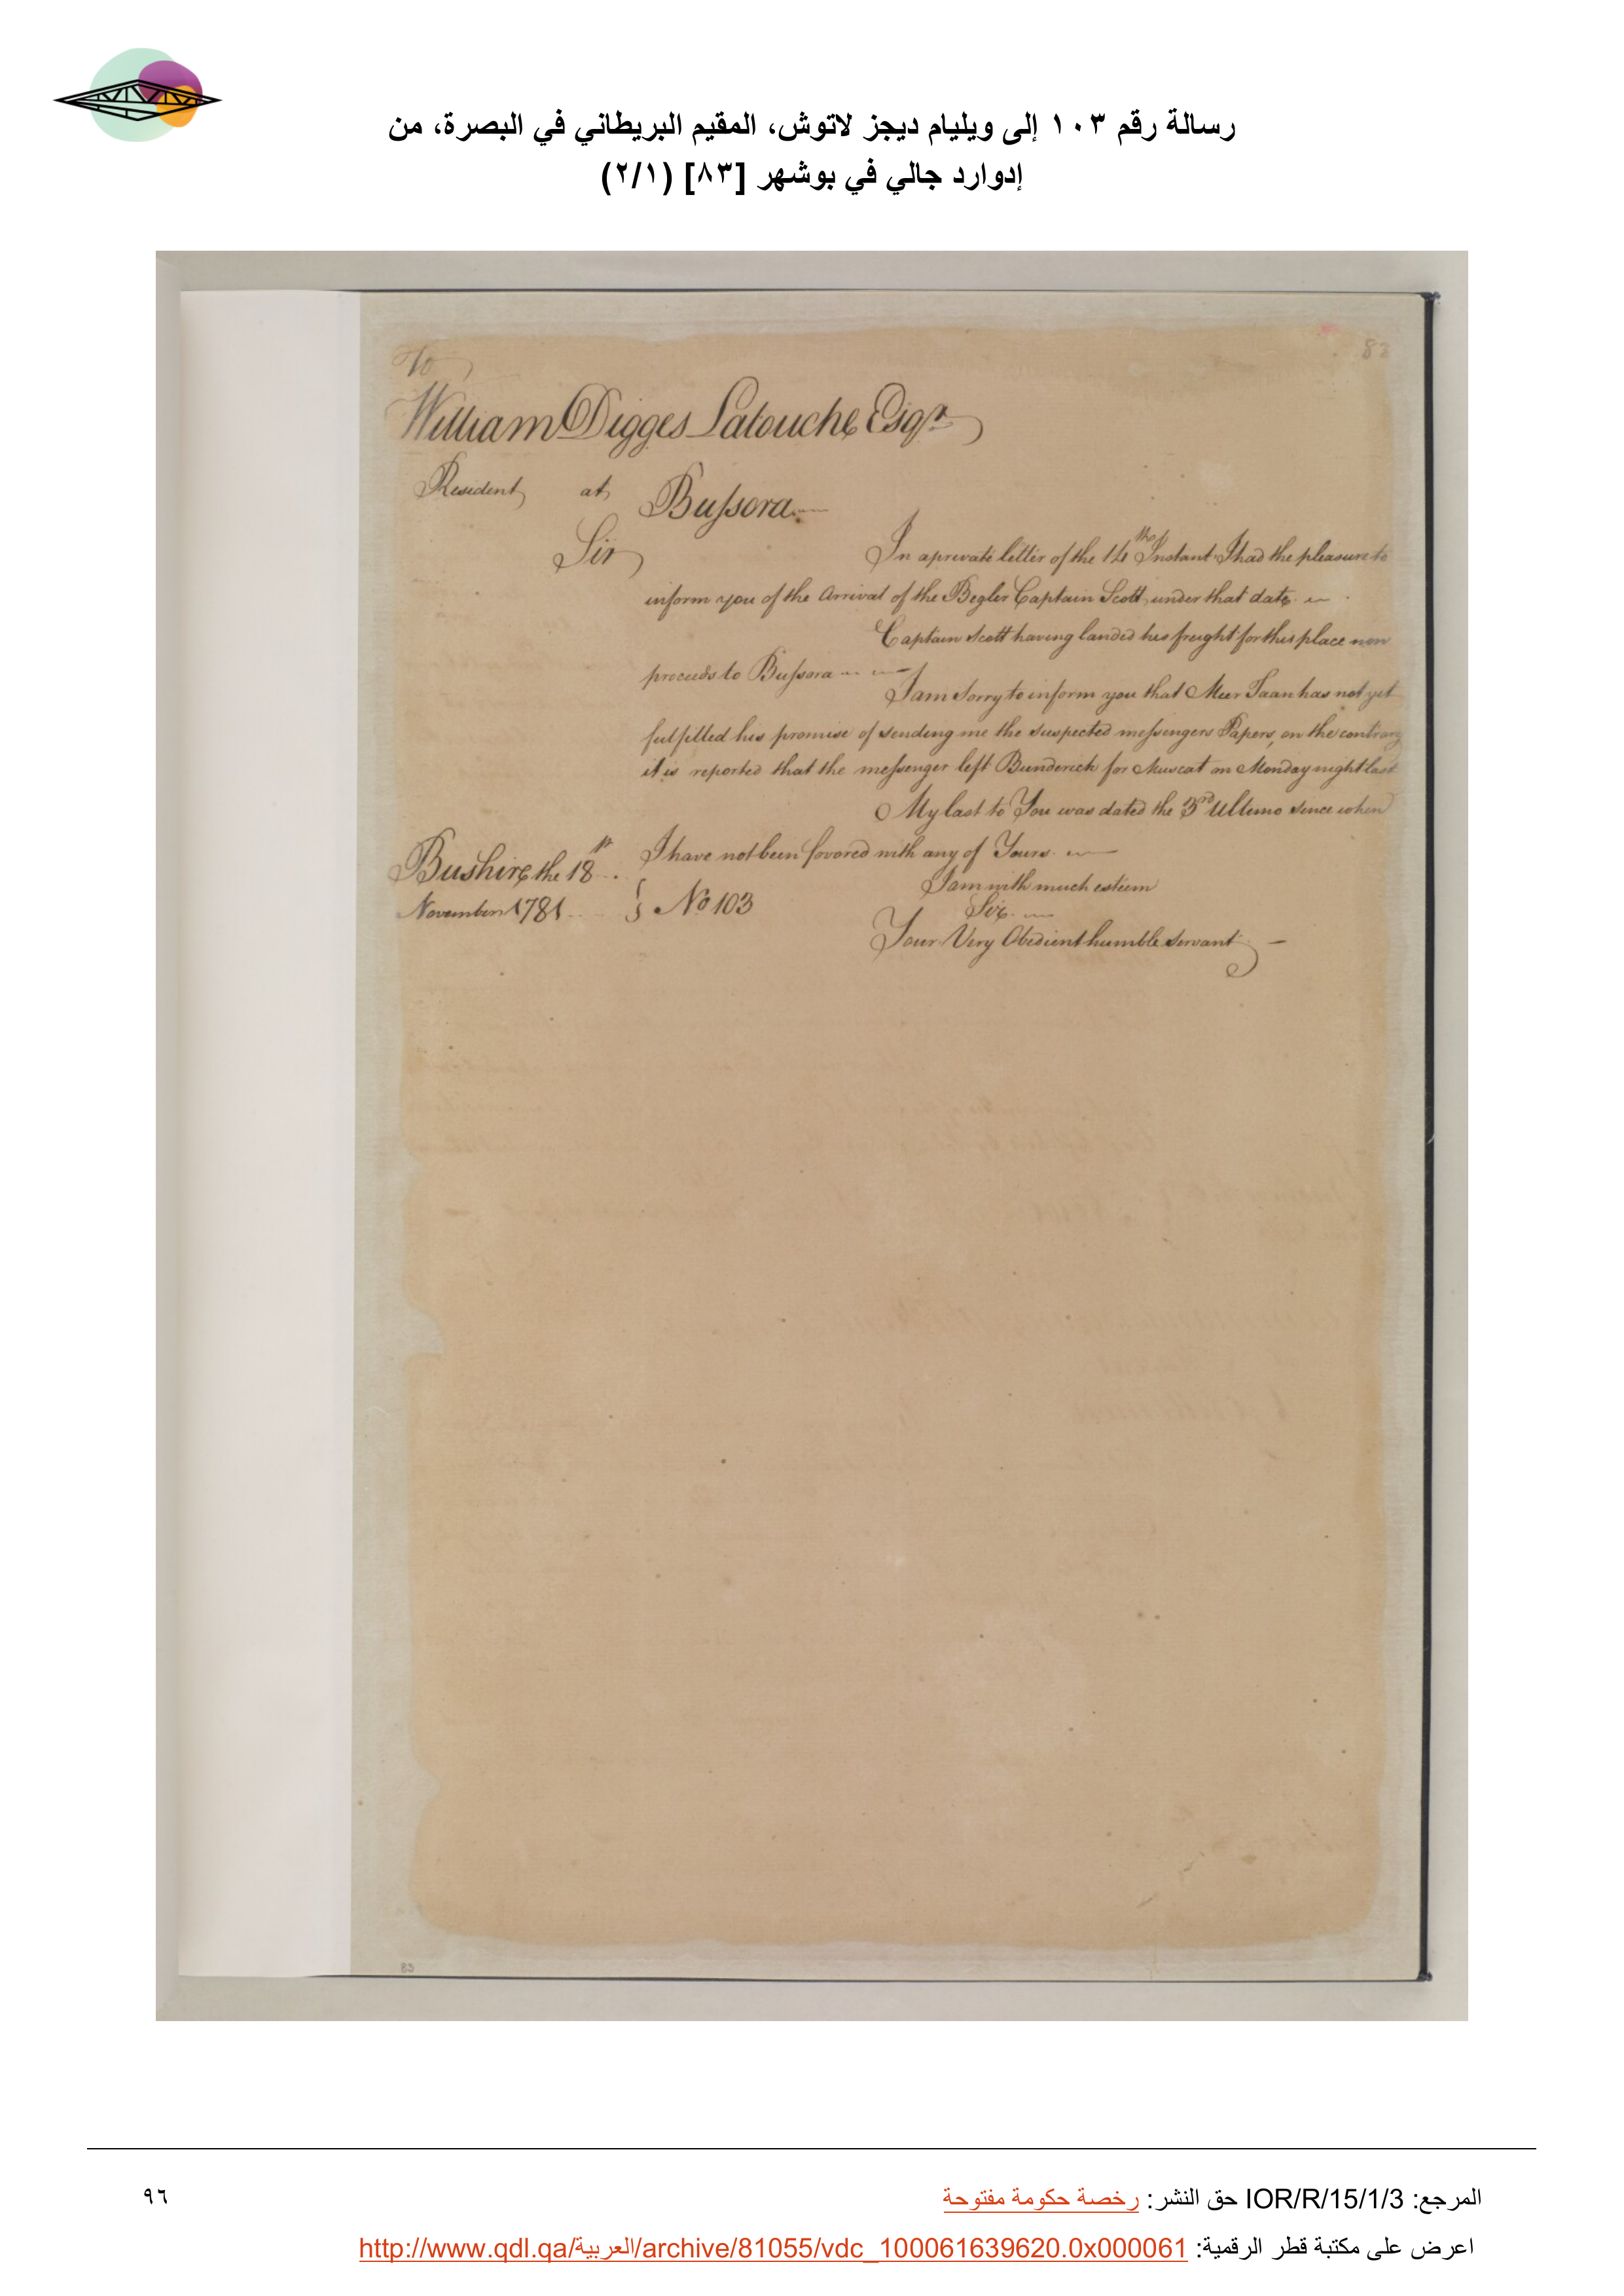 رسالة رقم ١٠٣ إلى ويليام ديجز لاتوش، المقيم البريطاني في البصرة، من
إدوارد جالي في بوشهر [٨٣] (٢/١)
83
To
William Digges Latouche Esqr
Resident at Bussora
Sir
In a private letter of the 14th Instant I had the pleasure to
inform you of the Arrival of the Begler Captain Scott, under that date.
Captain Scott having landed his freight for this place now
proceeds to Bussora
I am Sorry to inform you that Meer Taan has not yet
fulfilled his promise of sending me the suspected messengers Papers, on the contrary
it is reported that the messenger left Bunderick for Muscat on Monday night last
My last to You was dated the 3rd Ultimo since when
I have not been favored with any of Yours.
Bushire the 18
November 1781 } No 103
I am with much esteem
Sir
Your Very Obedient humble Servant
83
المرجع: IOR/R/15/1/3 حق النشر: رخصة حكومة مفتوحة
٩٦
اعرض على مكتبة قطر الرقمية: http://www.qdl.qa/العربية/archive/81055/vdc_100061639620.0x000061